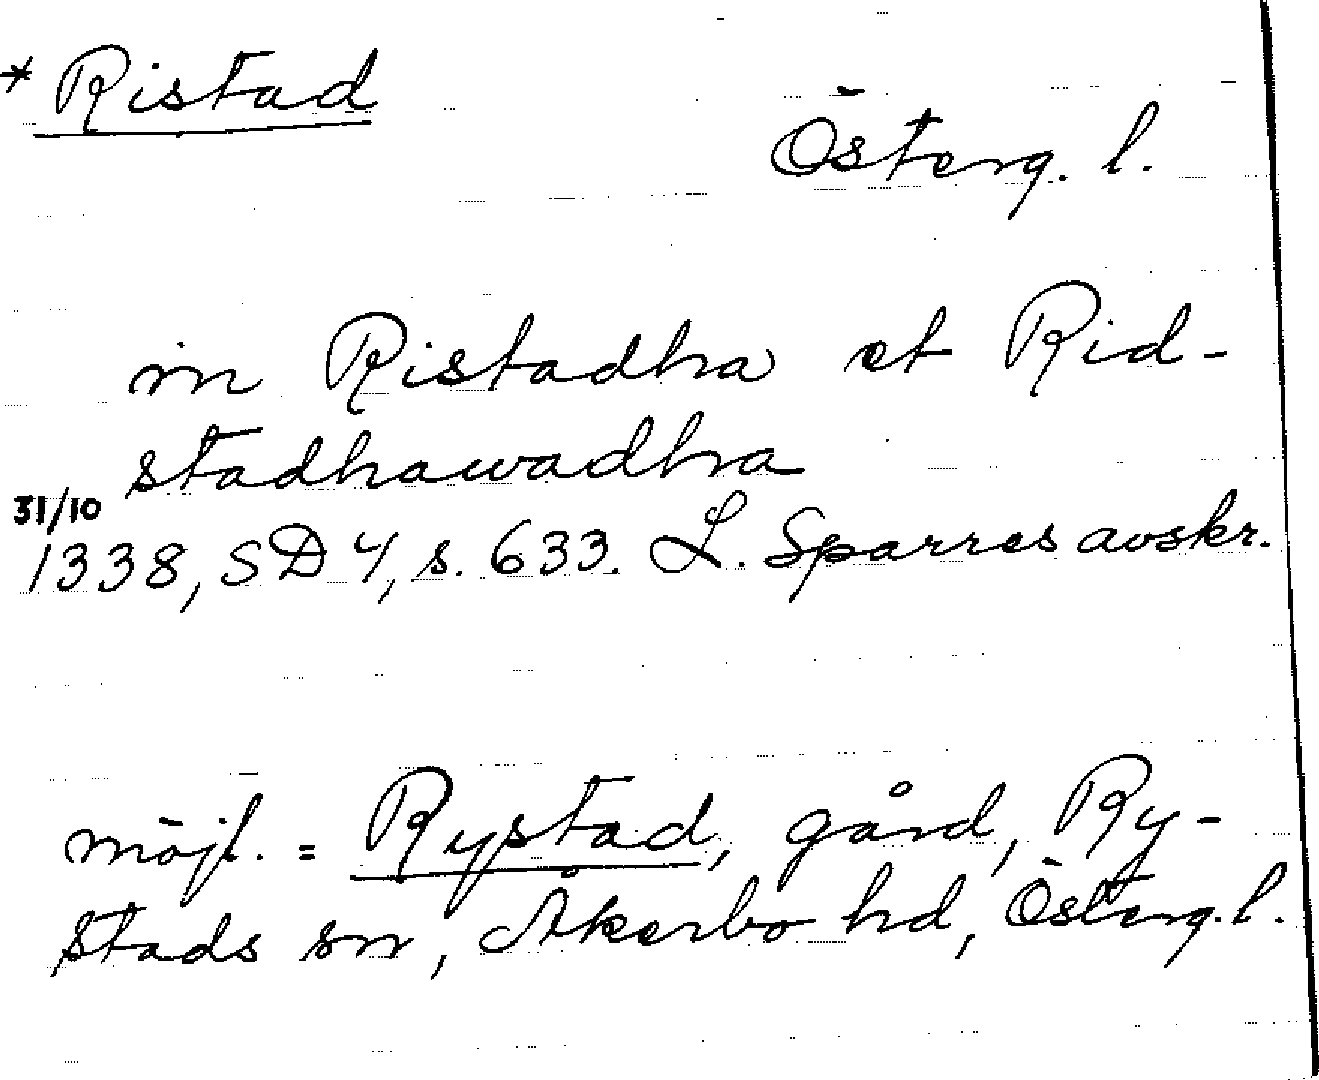 * Ristad
Österg. l.
in Ristadha et Rid-
stadhawadha
31/10
1338, SD 4, s. 633. L. Sparres avskr.
möjl. = Rystad, gård, Ry-
stads sn, Åkerbo hd, Österg. l.